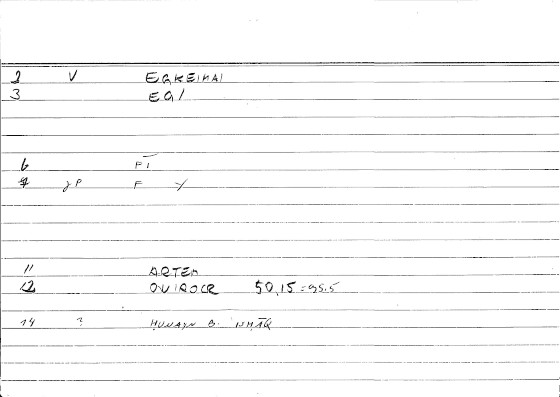 2 V EGKEINAI
3 EGI
6 PI
7 JP F Y
11 ARTEM
12 QUIROCR 50,15=95.5
14 ? HUNAYN B. ISHĀQ